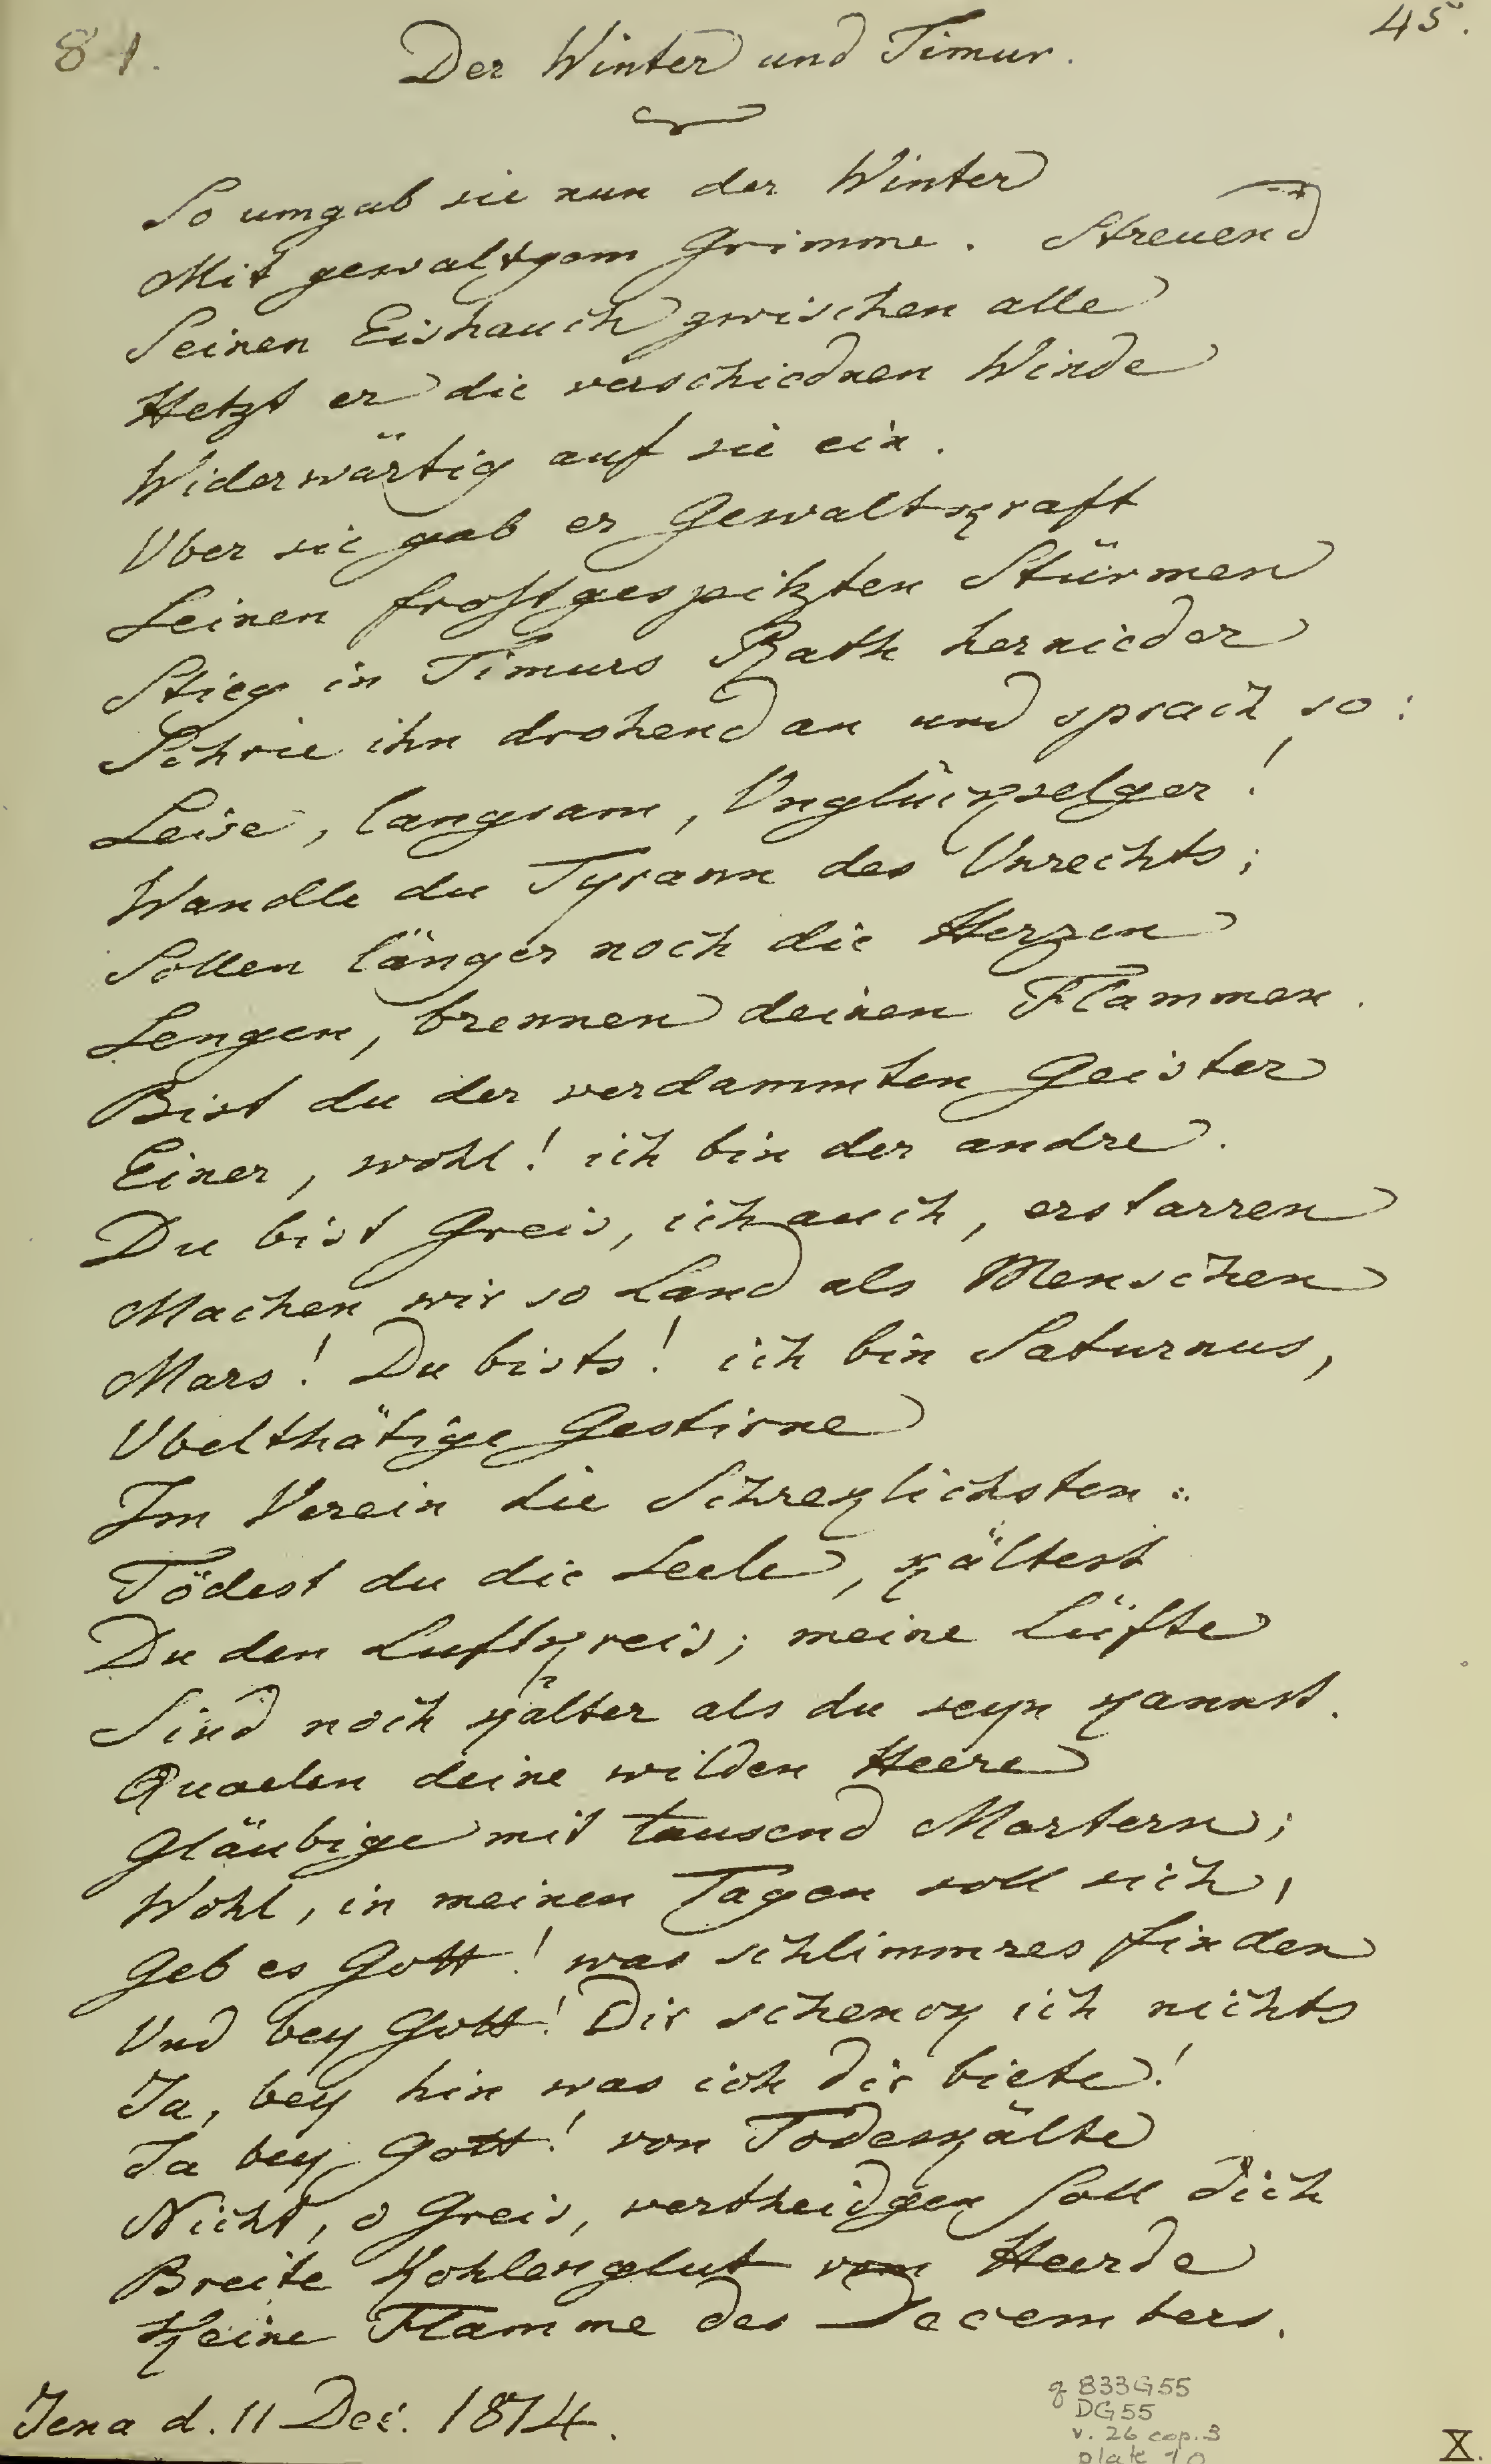 81.
45.
Der Winter und Timur.
So umgab sie nun der Winter
Mit gewaltgem Grimme. Streuend
Seinen Eishauch zwischen alle
Hetzt er die verschiednen Winde
Widerwärtig auf sie ein.
Uber sie gab er Gewaltkraft
Seinen frostgespitzten Stürmen
Stieg in Timurs Rath hernieder
Schrie ihn drohend an und sprach so:
Leise, langsam, Unglückselger!
Wandle du Tyrann des Unrechts;
Sollen länger noch die Herzen
Sengen, brennen deinen Flammen.
Bist du der verdammten Geister
Einer, wohl! ich bin der andre.
Du bist Greis, ich auch, erstarren
Machen wir so Land als Menschen
Mars! Du bists! ich bin Saturnus,
Ubelthätige Gestirne
Im Verein die Schrecklichsten:
Tödest du die Seele, kältest
Du den Luftkreis; meine Lüfte
Sind noch kälter als du seyn kannst.
Quaelen deine wilden Heere
Gläubige mit tausend Martern;
Wohl, in meinen Tagen soll sich,
Geb es Gott! was schlimmres finden
Und bey Gott! Dir schenck ich nichts
Ja, bey hin was ich dir biete!
Ja bey Gott! von Todeskälte
Nicht, o Greis, vertheidgen soll dich
Breite Kohlenglut vom Heerde
Keine Flamme des Decembers.
Jena d. 11 Dec. 1814.
q 833G55
DG55
v. 26 cop. 3
plate 10
X.